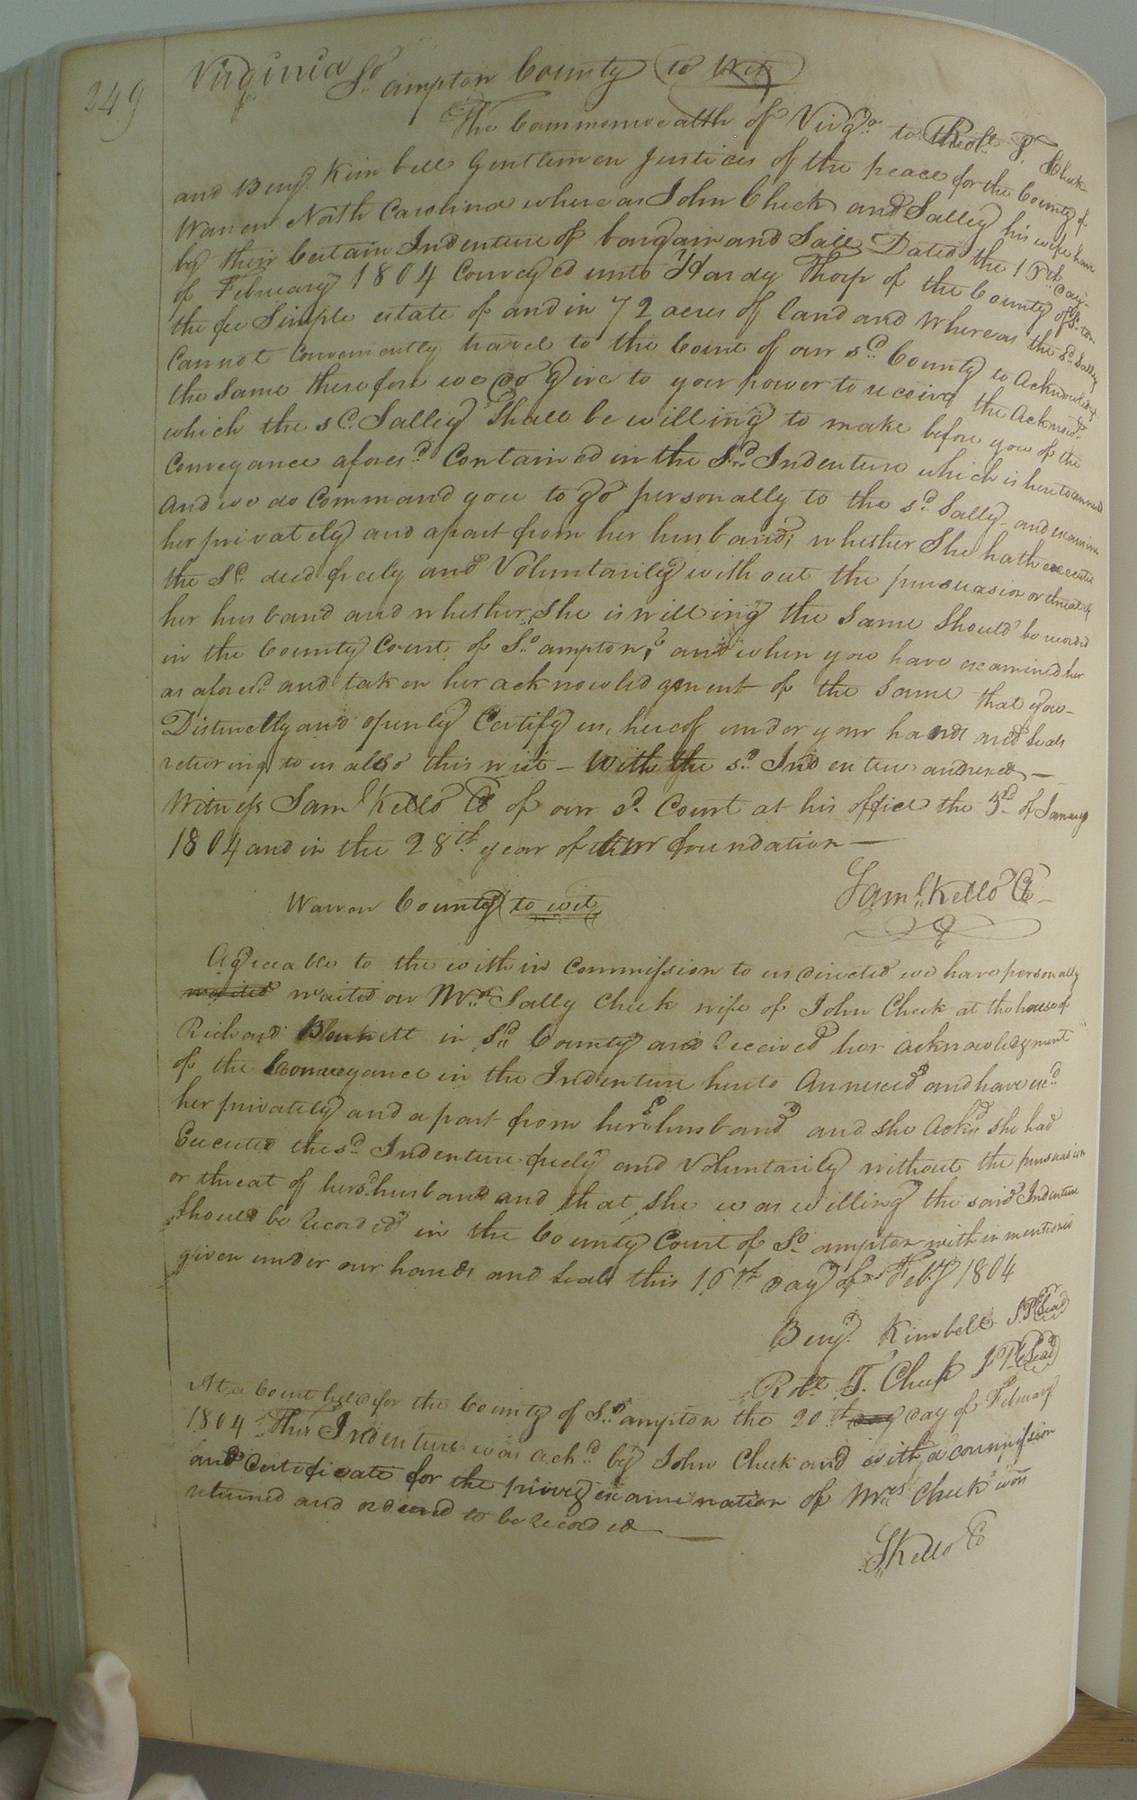 249
Virginia So.ampton County to Wit
The Commonwealth of Virga. to Robt. T. Cheek
and Benj. Kimbell Gentlemen Justices of the peace for the County of
Warren North Carolina whereas John Cheek and Salley his wife have
by their Certain Indenture of bargain and Sale Dated the 16th day
of February 1804 Conveyed unto Hardy Tharp of the County of So.ton
the fee Simple estate of and in 72 acres of land and Whereas the sd. Salley
Cannot Conveniently travel to the Court of our sd. County to Acknowledge
the Same therefore we do Give to your power to receive the Acknowt.
which the sd. Salley Shall be willing to make before you of the
Conveyance aforesd. Contained in the Sd. Indenture which is hereto annexed
And we do Command you to go personally to the sd. Sally and examine
her privately and apart from her husband, whether She hath executed
the Sd. deed freely and Voluntarily with out the persuasion or threats of
her husband and whether She is willing the Same Should be recorded
in the County Court of So.ampton, and when you have examined her
as aforesd. and taken her acknowledgement of the Same that you
Distinctly and openly Certify us, hereof under your hands and Seals
returning to us also this writ - With the sd. Indenture annexed —
Witness Saml. Kello C of our sd. Court at his office the 3d. of January
1804 and in the 28th year of our foundation —
Saml. Kello C
Warren County to wit
Agreeable to the within Commission to us directed we have personally
waited waited on Mrs. Sally Cheek wife of John Cheek at the house of
Richard in Sd. County and Received her acknowledgment
of the Conveyance in the Indenture hereto Annexed and have exd.
her privately and apart from her sd. husband and she Ackd. she had
Executed the sd. Indenture freely and Voluntarily without the persuasion
or threat of her sd. husband and that she was willing the said Indenture
Should be Recorded in the County Court of So.ampton within mentioned
given under our hands and Seals this 16th day of Feby 1804
Benj. Kimbell J.P. Seal
Robt. T. Cheek J.P. Seal
At a Court held for the County of So.ampton the 20th day day of February
1804 This Indenture was ackd. by John Cheek and with a commission
and Certificate for the privey examination of Mrs. Cheek was
returned and ordered to be Recorded —
S Kello C